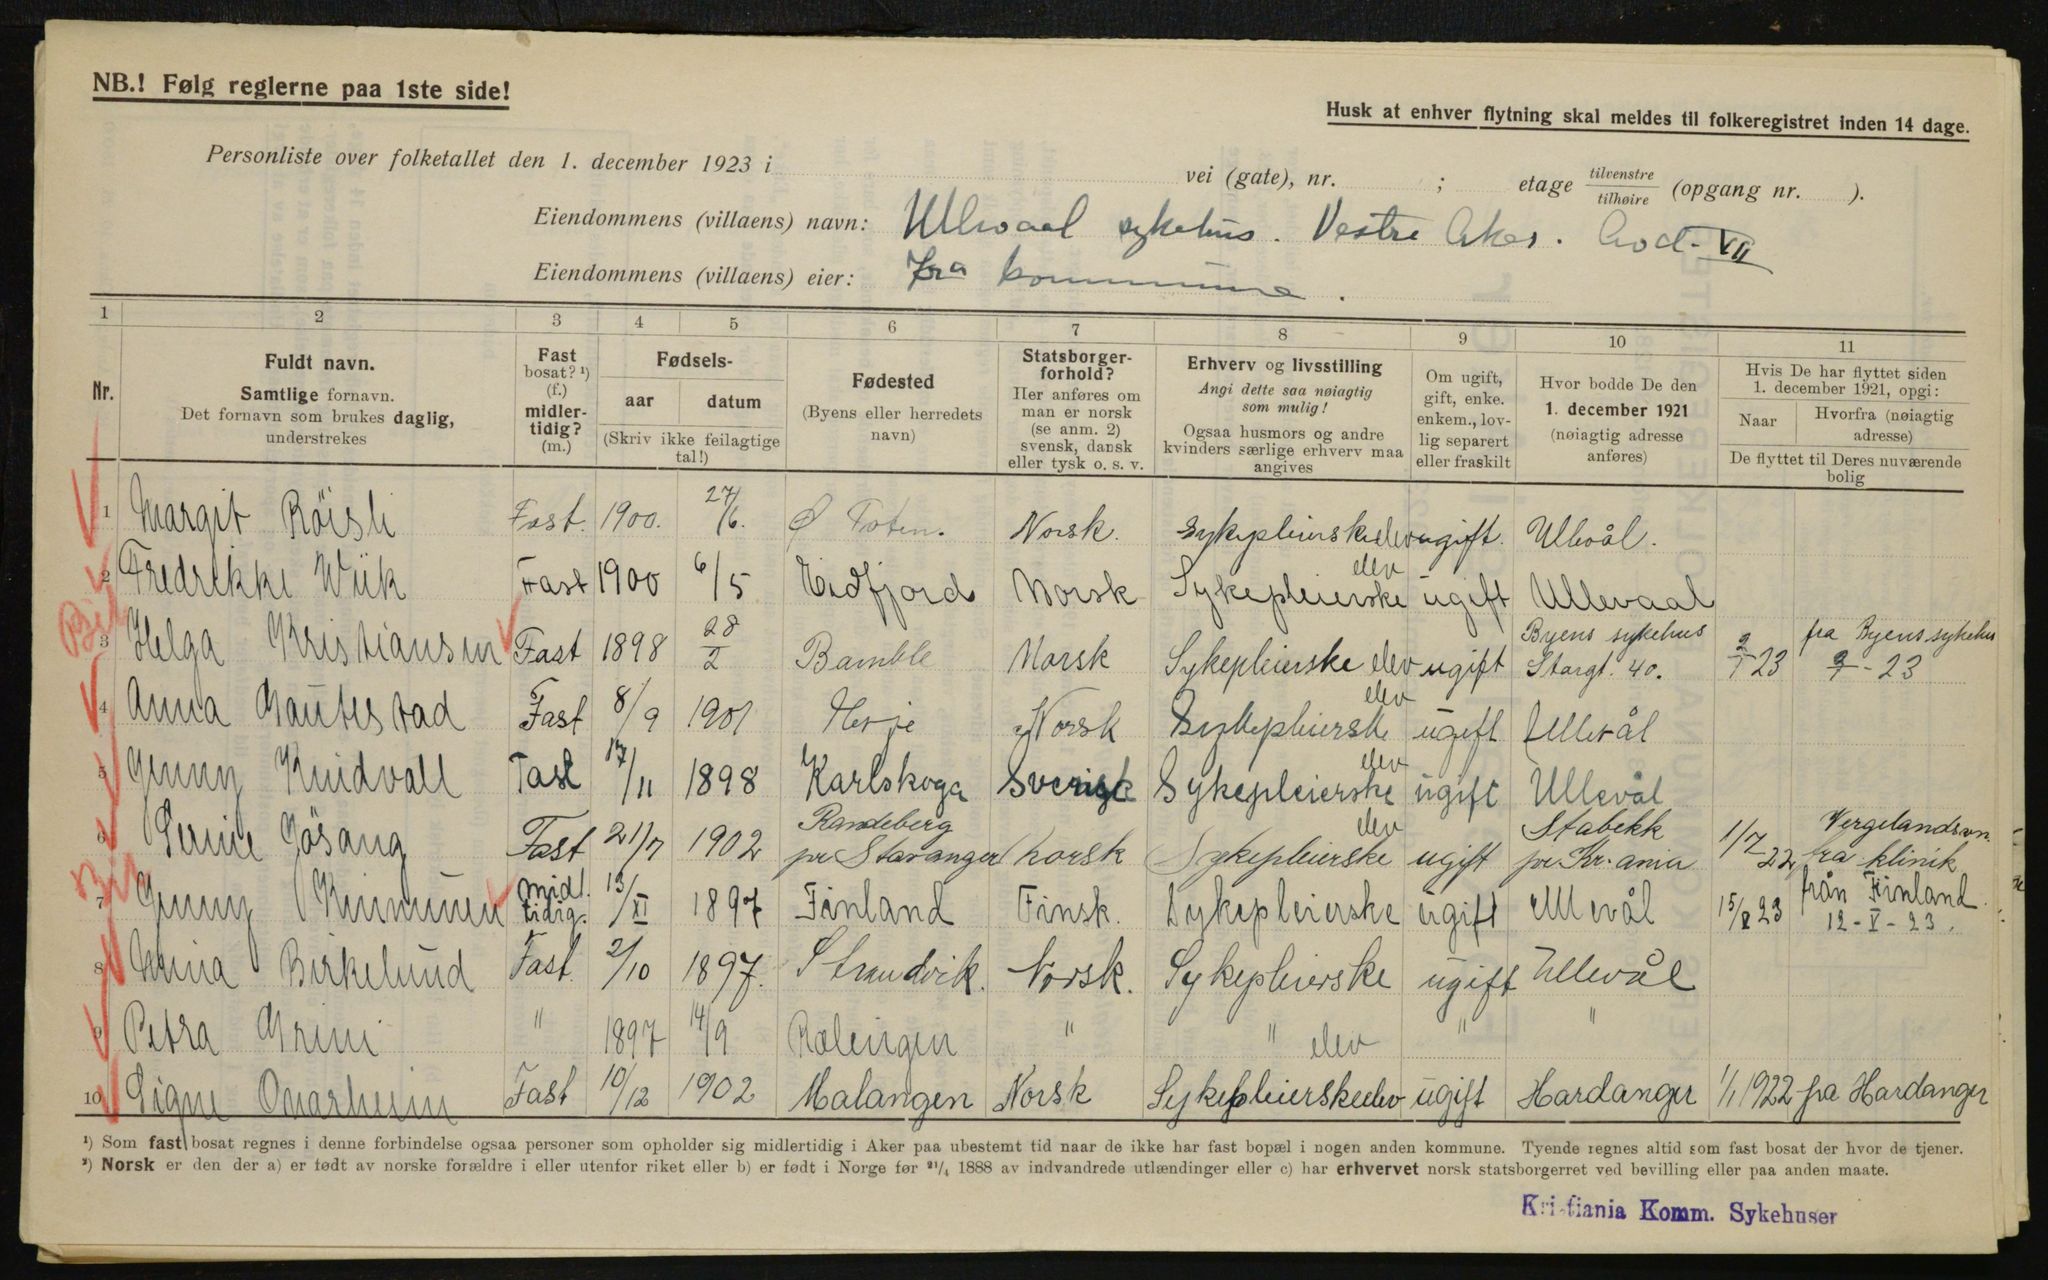 NB.! Følg reglerne paa 1ste side!
Husk at enhver flytning skal meldes til folkeregistret inden 14 dage.
Personliste over folketallet den 1. december 1923 i vei (gate), nr. ; etage tilvenstre/tilhøire (opgang nr. ).
Eiendommens (villaens) navn: Ullevaal sykehus. Vestre Aker. Avd. VII
Eiendommens (villaens) eier: kommune.
1 2 3 4 5 6 7 8 9 10 11
Nr.
Fuldt navn.
Samtlige fornavn.
Det fornavn som brukes daglig,
understrekes
Fast
bosat? ¹)
(f.)
midler-
tidig?
(m.)
Fødsels-
aar datum
(Skriv ikke feilagtige
tal!)
Fødested
(Byens eller herredets
navn)
Statsborger-
forhold?
Her anføres om
man er norsk
(se anm. 2)
svensk, dansk
eller tysk o. s. v.
Erhverv og livsstilling
Angi dette saa nøiagtig
som mulig!
Ogsaa husmors og andre
kvinders særlige erhverv maa
angives
Om ugift,
gift, enke.
enkem., lov-
lig separert
eller fraskilt
Hvor bodde De den
1. december 1921
(nøiagtig adresse
anføres)
Hvis De har flyttet siden
1. december 1921, opgi:
Naar Hvorfra (nøiagtig
adresse)
De flyttet til Deres nuværende
bolig
1 Margit Röisli Fast. 1900. 27/6. Ø Toten. Norsk. Sykepleierskeelev ugift. Ullevål.
2 Fredrikke Wiik Fast 1900 6/5 Eidfjord Norsk Sykepleierske elev ugift Ullevaal
3 Helga Kristiansen Fast 1898 28/2 Bamble Norsk Sykepleierske elev ugift Byens sykehus Storgt. 40. 23 fra Byens sykehus 23
4 Anna Gautestad Fast 8/9 1901 Norsk Sykepleierske elev ugift Ullevål
5 Jenny Kindvall Fast 17/11 1898 Karlskoga Svensk Sykepleierske elev ugift Ullevål
6 Gösang Fast 21/7 1902 Randeberg pr Stavanger Norsk Sykepleierske elev ugift Stabekk pr Kr.ania 1/7 22 Vergelandsvn. fra klinik
7 Jenny Kinnunen midl. tidig. 13/XI 1897 Finland Finsk. Sykepleierske ugift Ullevål 15/V 23 från Finland 12-V-23.
8 Birkelund Fast 2/10 1897. Strandvik. Norsk. Sykepleierske ugift Ullevål
9 Petra Grini " 1897 14/9 Rælingen " " elev " "
10 Signe Onarheim Fast 10/12 1902 Malangen Norsk Sykepleierskeelev ugift Hardanger 1/1 1922 fra Hardanger
¹) Som fast bosat regnes i denne forbindelse ogsaa personer som opholder sig midlertidig i Aker paa ubestemt tid naar de ikke har fast bopæl i nogen anden kommune. Tyende regnes altid som fast bosat der hvor de tjener.
²) Norsk er den der a) er født av norske forældre i eller utenfor riket eller b) er født i Norge før 21/4 1888 av indvandrede utlændinger eller c) har erhvervet norsk statsborgerret ved bevilling eller paa anden maate.
Kristiania Komm. Sykehuser